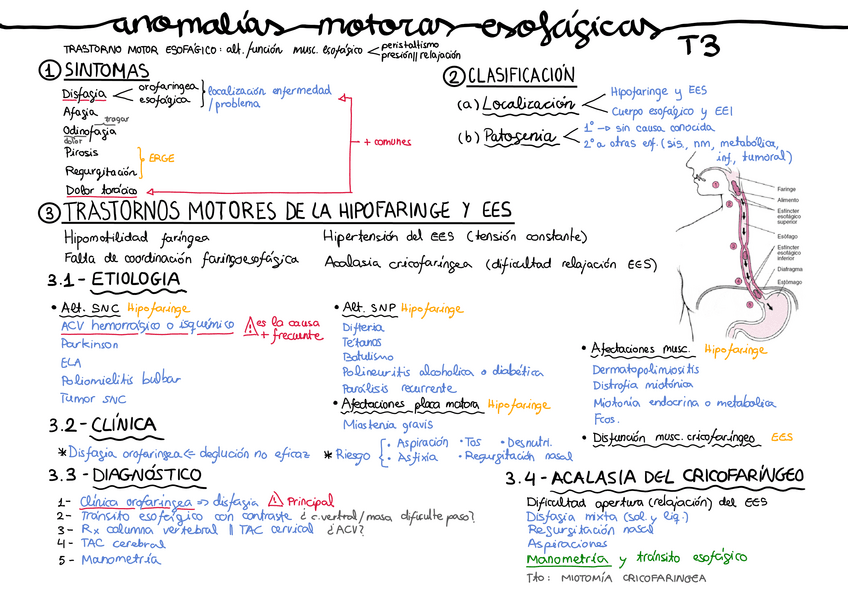 anomalías motoras esofágicas
T3
TRASTORNO MOTOR ESOFÁGICO: alt. función musc. esofágico < peristaltismo
presión || relajación
1 SINTOMAS
Disfagia < orofaringea
esofágica
localización enfermedad
/problema
Afagia
tragar
Odinofagia
dolor
Pirosis
ERGE
Regurgitación
Dolor torácico
+ comunes
2 CLASIFICACIÓN
(a) Localización < Hipofaringe y EES
Cuerpo esofágico y EEI
(b) Patogenia < 1º -> sin causa conocida
2º a otras enf. (sis, nm, metabólica,
inf, tumoral)
Faringe
Alimento
Esfínter
esofágico
superior
Esófago
Esfínter
esofágico
inferior
Diafragma
Estómago
3 TRASTORNOS MOTORES DE LA HIPOFARINGE Y EES
Hipomotilidad faríngea
Hipertensión del EES (tensión constante)
Falta de coordinación faringoesofágica
Acalasia cricofaríngea (dificultad relajación EES)
3.1- ETIOLOGIA
• Alt. SNC Hipofaringe
ACV hemorrágico o isquémico
! es la causa
+ frecuente
Parkinson
ELA
Poliomielitis bulbar
Tumor SNC
• Alt. SNP Hipofaringe
Difteria
Tétanos
Botulismo
Polineuritis alcoholica o diabética
Parálisis recurrente
• Afectaciones placa motora Hipofaringe
Miastenia gravis
• Afectaciones musc. Hipofaringe
Dermatopolimiositis
Distrofia miotónica
Miotonía endocrina o metabolica
Fcos.
• Disfunción musc. cricofaríngeo EES
3.2- CLÍNICA
* Disfagia orofaringea <= deglución no eficaz
* Riesgo { • Aspiración • Tos • Desnutri.
• Asfixia • Regurgitación nasal
3.3- DIAGNÓSTICO
1- Clínica orofaringea => disfagia ! Principal
2- Tránsito esofágico con contraste ¿c.vertral/masa dificulte paso?
3- Rx columna vertebral || TAC cervical ¿ACV?
4- TAC cerebral
5- Manometría
3.4- ACALASIA DEL CRICOFARÍNGEO
Dificultad apertura (relajación) del EES
Disfagia mixta (sol. y liq.)
Regurgitación nasal
Aspiraciones
Manometría y tránsito esofágico
Tto: MIOTOMÍA CRICOFARINGEA